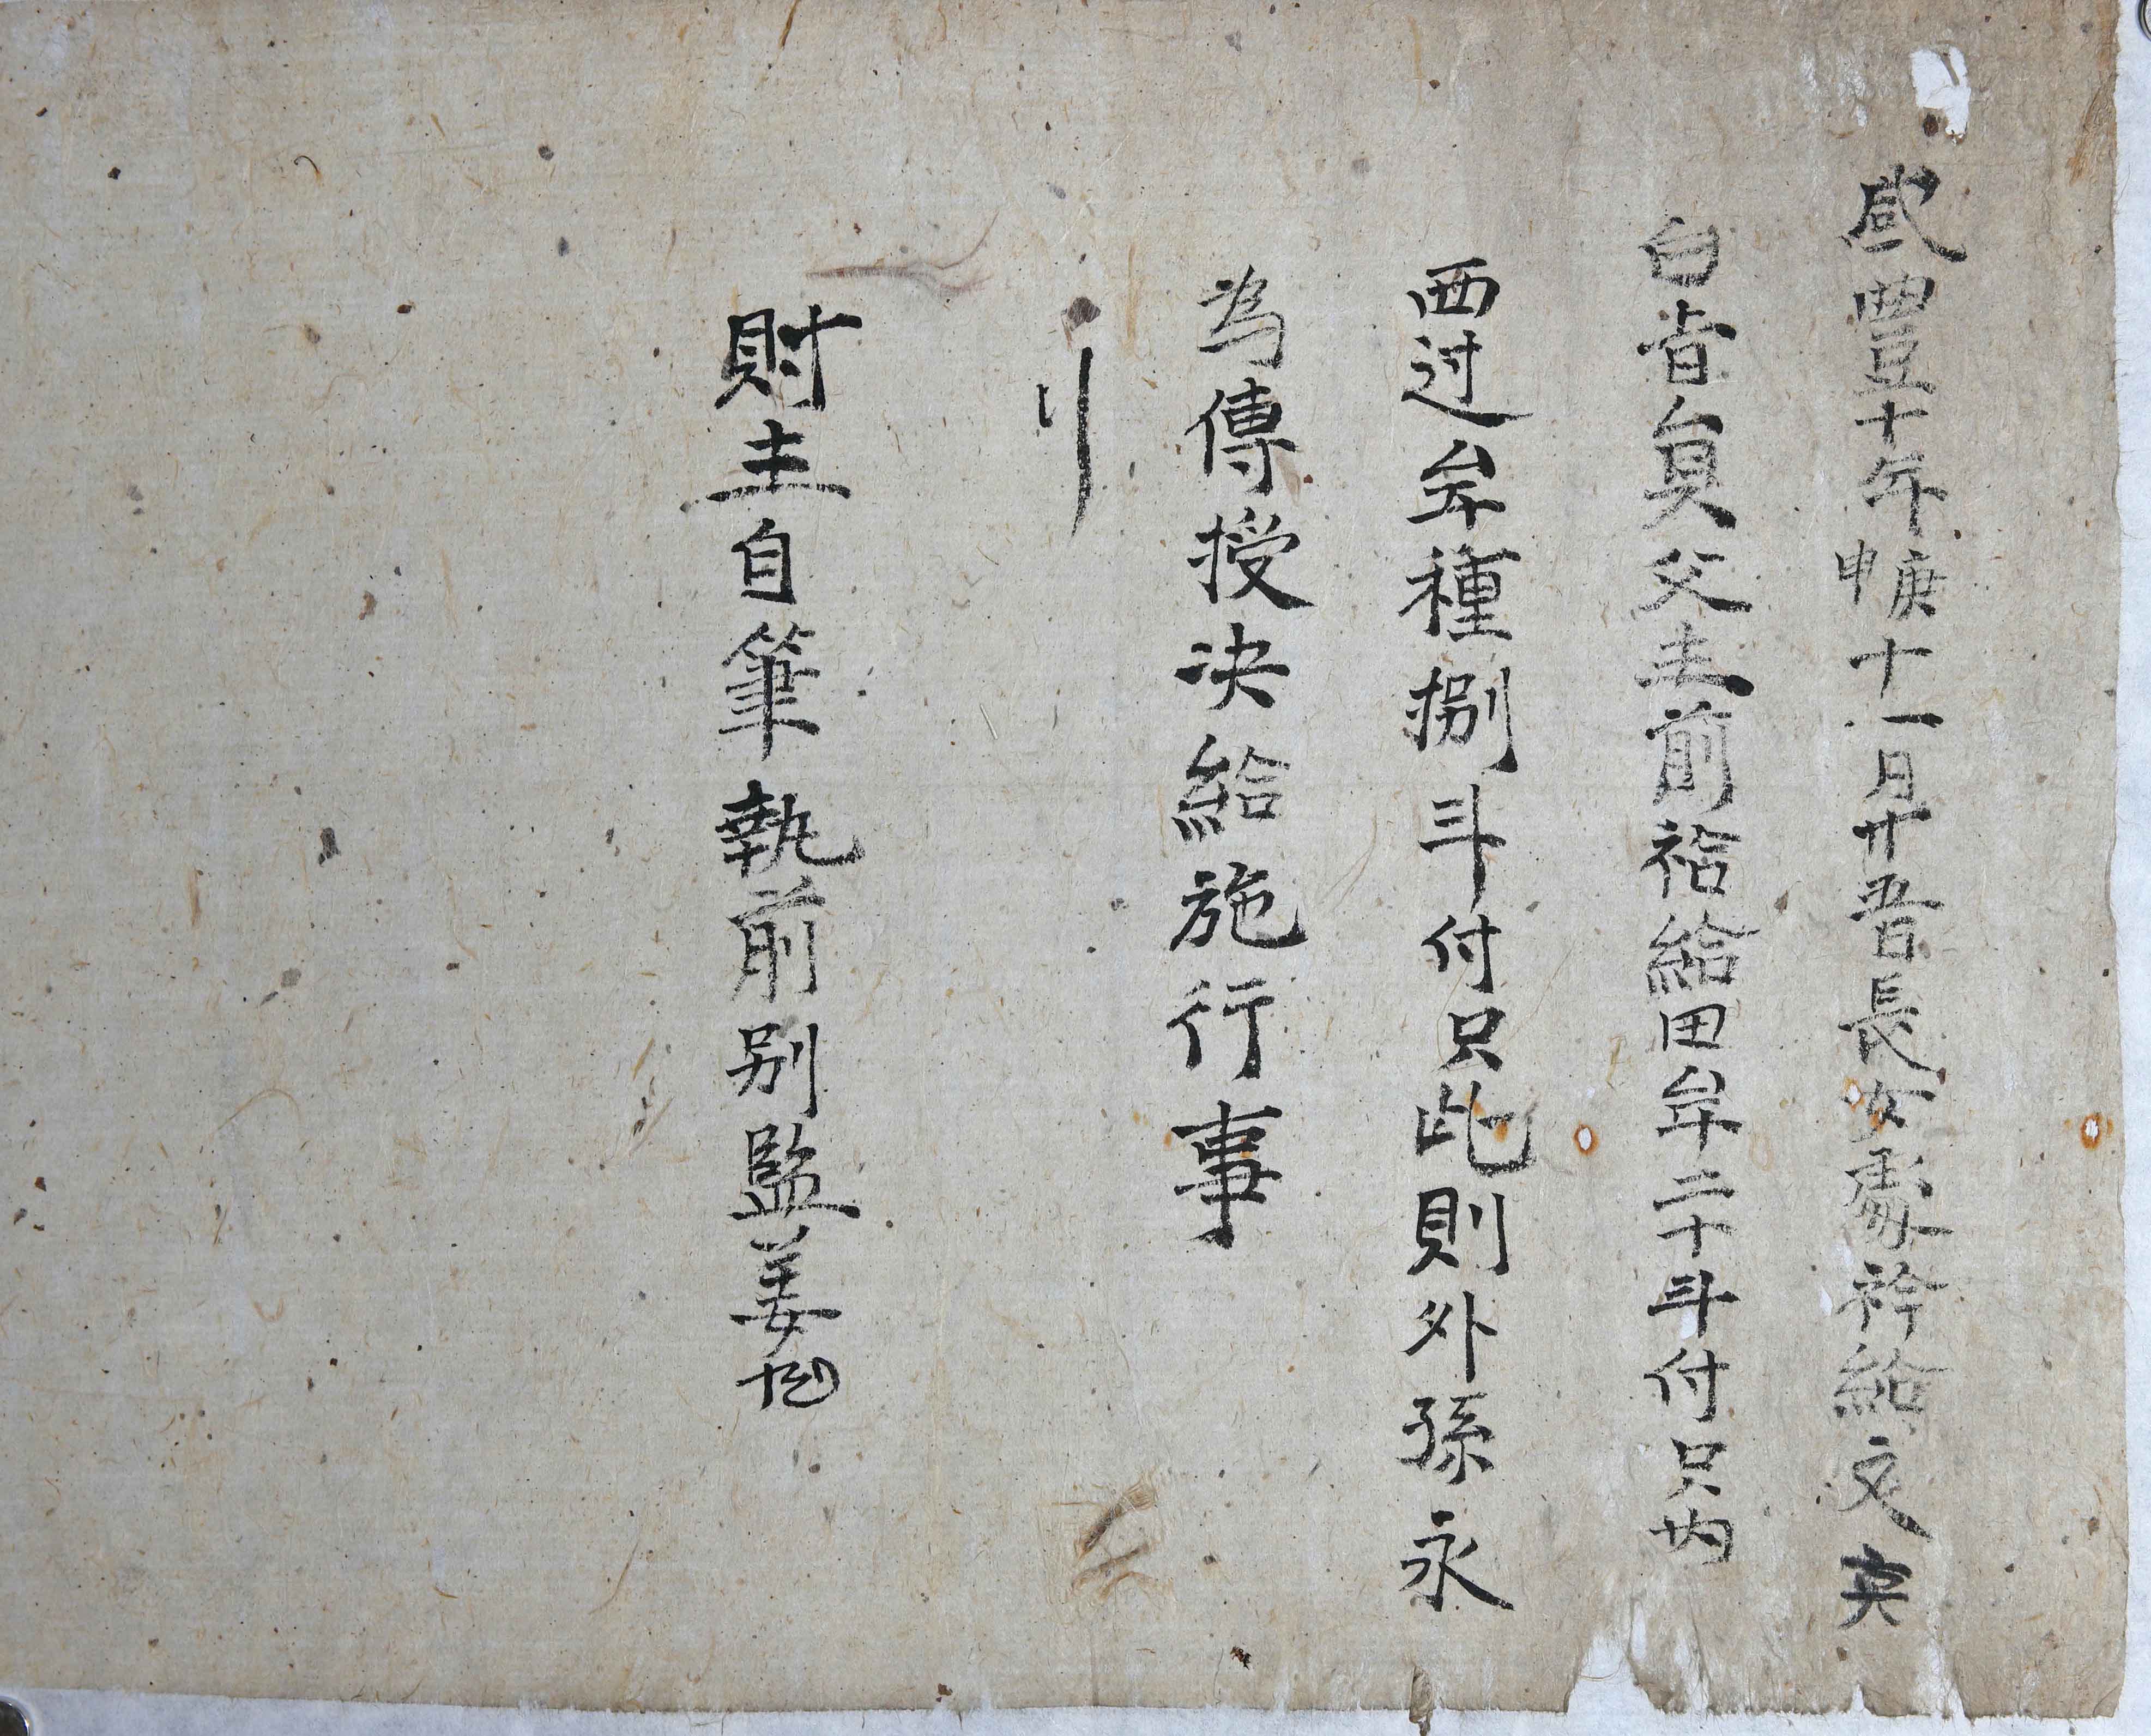 咸豐十年庚申十一月廿五日長女處衿給文
右旨矣父主前衿給田牟二十斗付只內
西边牟種捌斗付只此則外孫永
為傳授決給施行事
財主自筆執前別監姜